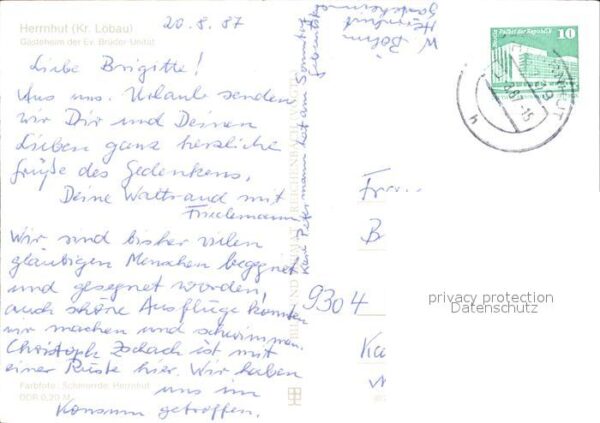 Herrnhut (Kr. Löbau)
Gästeheim der Ev. Brüder-Unität
20.8.87
Liebe Brigitte!
Aus uns. Urlaub senden
wir Dir und Deinen
Lieben ganz herzliche
Grüße des Gedenkens,
Deine Waltraud mit
Friedemann
Wir sind bisher vielen
gläubigen Menschen begegnet
und gesegnet worden,
auch schöne Ausflüge konnten
wir machen und schwimmen.
Christoph Zschach ist mit
einer Rüste hier. Wir haben
uns im
Konsum getroffen.
Farbfoto: Schmorrde, Herrnhut
DDR 0,20 M
Karl Petermann hat am Sonntag
Geburtstag
W. Böhm
Herrnhut
Gästeheim
BILD UND HEIMAT REICHENBACH (VOGTL)
Palast der Republik
10
Frau
B
9304
Ka
privacy protection
Datenschutz